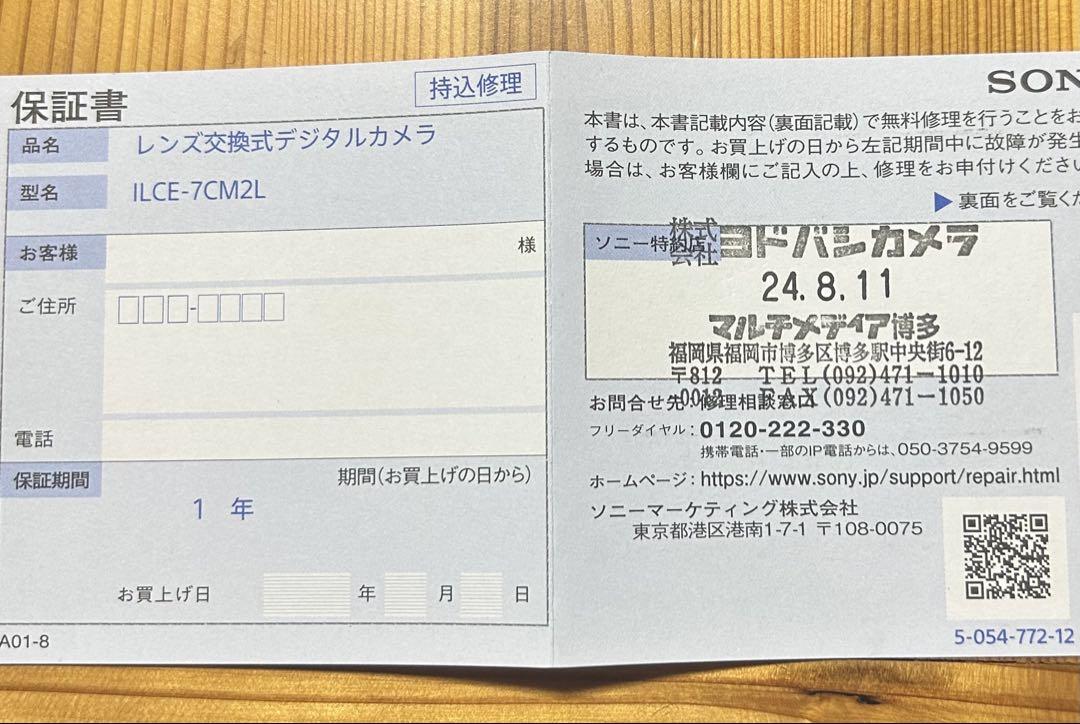 保証書
持込修理
品名 レンズ交換式デジタルカメラ
型名 ILCE-7CM2L
お客様 様
ご住所
-
電話
保証期間 期間(お買上げの日から)
1 年
お買上げ日 年 月 日
A01-8
SON
本書は、本書記載内容(裏面記載)で無料修理を行うことをお
するものです。お買上げの日から左記期間中に故障が発生
場合は、お客様欄にご記入の上、修理をお申付けください
▶裏面をご覧くた
ソニー特約店
株式会社 ヨドバシカメラ
24.8.11
マルチメディア博多
福岡県福岡市博多区博多駅中央街6-12
〒812 TEL(092)471-1010
0012 FAX(092)471-1050
お問合せ先:修理相談窓口
フリーダイヤル:0120-222-330
携帯電話・一部のIP電話からは、050-3754-9599
ホームページ:https://www.sony.jp/support/repair.html
ソニーマーケティング株式会社
東京都港区港南1-7-1 〒108-0075
5-054-772-12